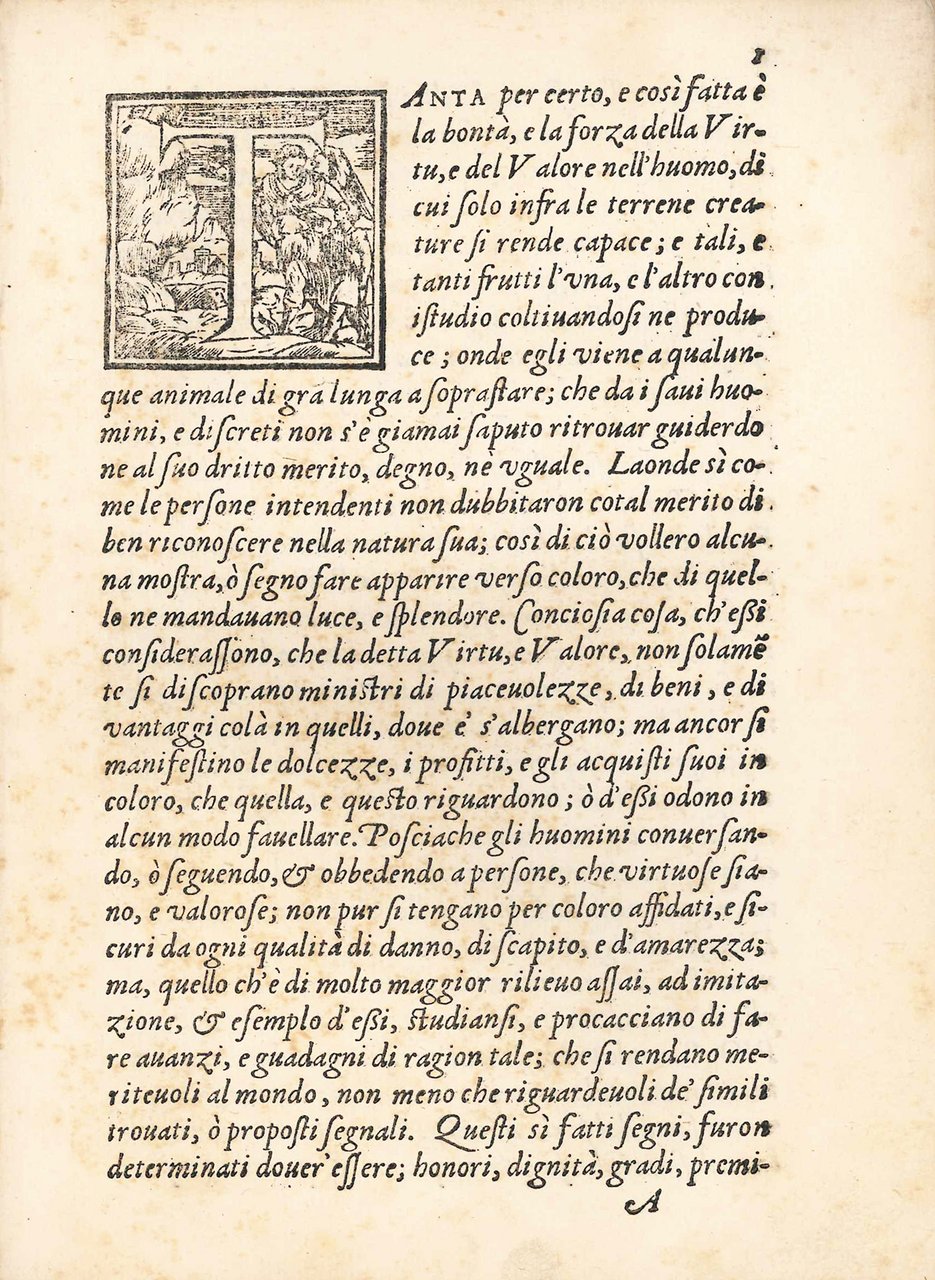 1
TANTA per certo, e così fatta è
la bontà, e la forza della Vir-
tu, e del Valore nell'huomo, di
cui solo infra le terrene crea-
ture si rende capace; e tali, e
tanti frutti l'vna, e l'altro con
istudio coltiuandosi ne produ-
ce; onde egli viene a qualun-
que animale di grā lunga a soprastare; che da i saui huo-
mini, e discreti non s'è giamai saputo ritrouar guiderdo
ne al suo dritto merito, degno, nè vguale. Laonde sì co-
me le persone intendenti non dubbitaron cotal merito di
ben riconoscere nella natura sua; così di ciò vollero alcu-
na mostra, ò segno fare apparire verso coloro, che di quel-
lo ne mandauano luce, e splendore. Conciosia cosa, ch'eßi
considerassono, che la detta Virtu, e Valore, non solamē
te si discoprano ministri di piaceuolezze, di beni, e di
vantaggi colà in quelli, doue e' s'albergano; ma ancor si
manifestino le dolcezze, i profitti, e gli acquisti suoi in
coloro, che quella, e questo riguardono; ò d'eßi odono in
alcun modo fauellare. Posciache gli huomini conuersan-
do, ò seguendo, & obbedendo a persone, che virtuose sia-
no, e valorose; non pur si tengano per coloro affidati, e si-
curi da ogni qualità di danno, di scapito, e d'amarezza;
ma, quello ch'è di molto maggior rilieuo assai, ad imita-
zione, & esemplo d'eßi, studiansi, e procacciano di fa-
re auanzi, e guadagni di ragion tale; che si rendano me-
riteuoli al mondo, non meno che riguardeuoli de' simili
trouati, ò proposti segnali. Questi sì fatti segni, furon
determinati douer'essere; honori, dignità, gradi, premi-
A